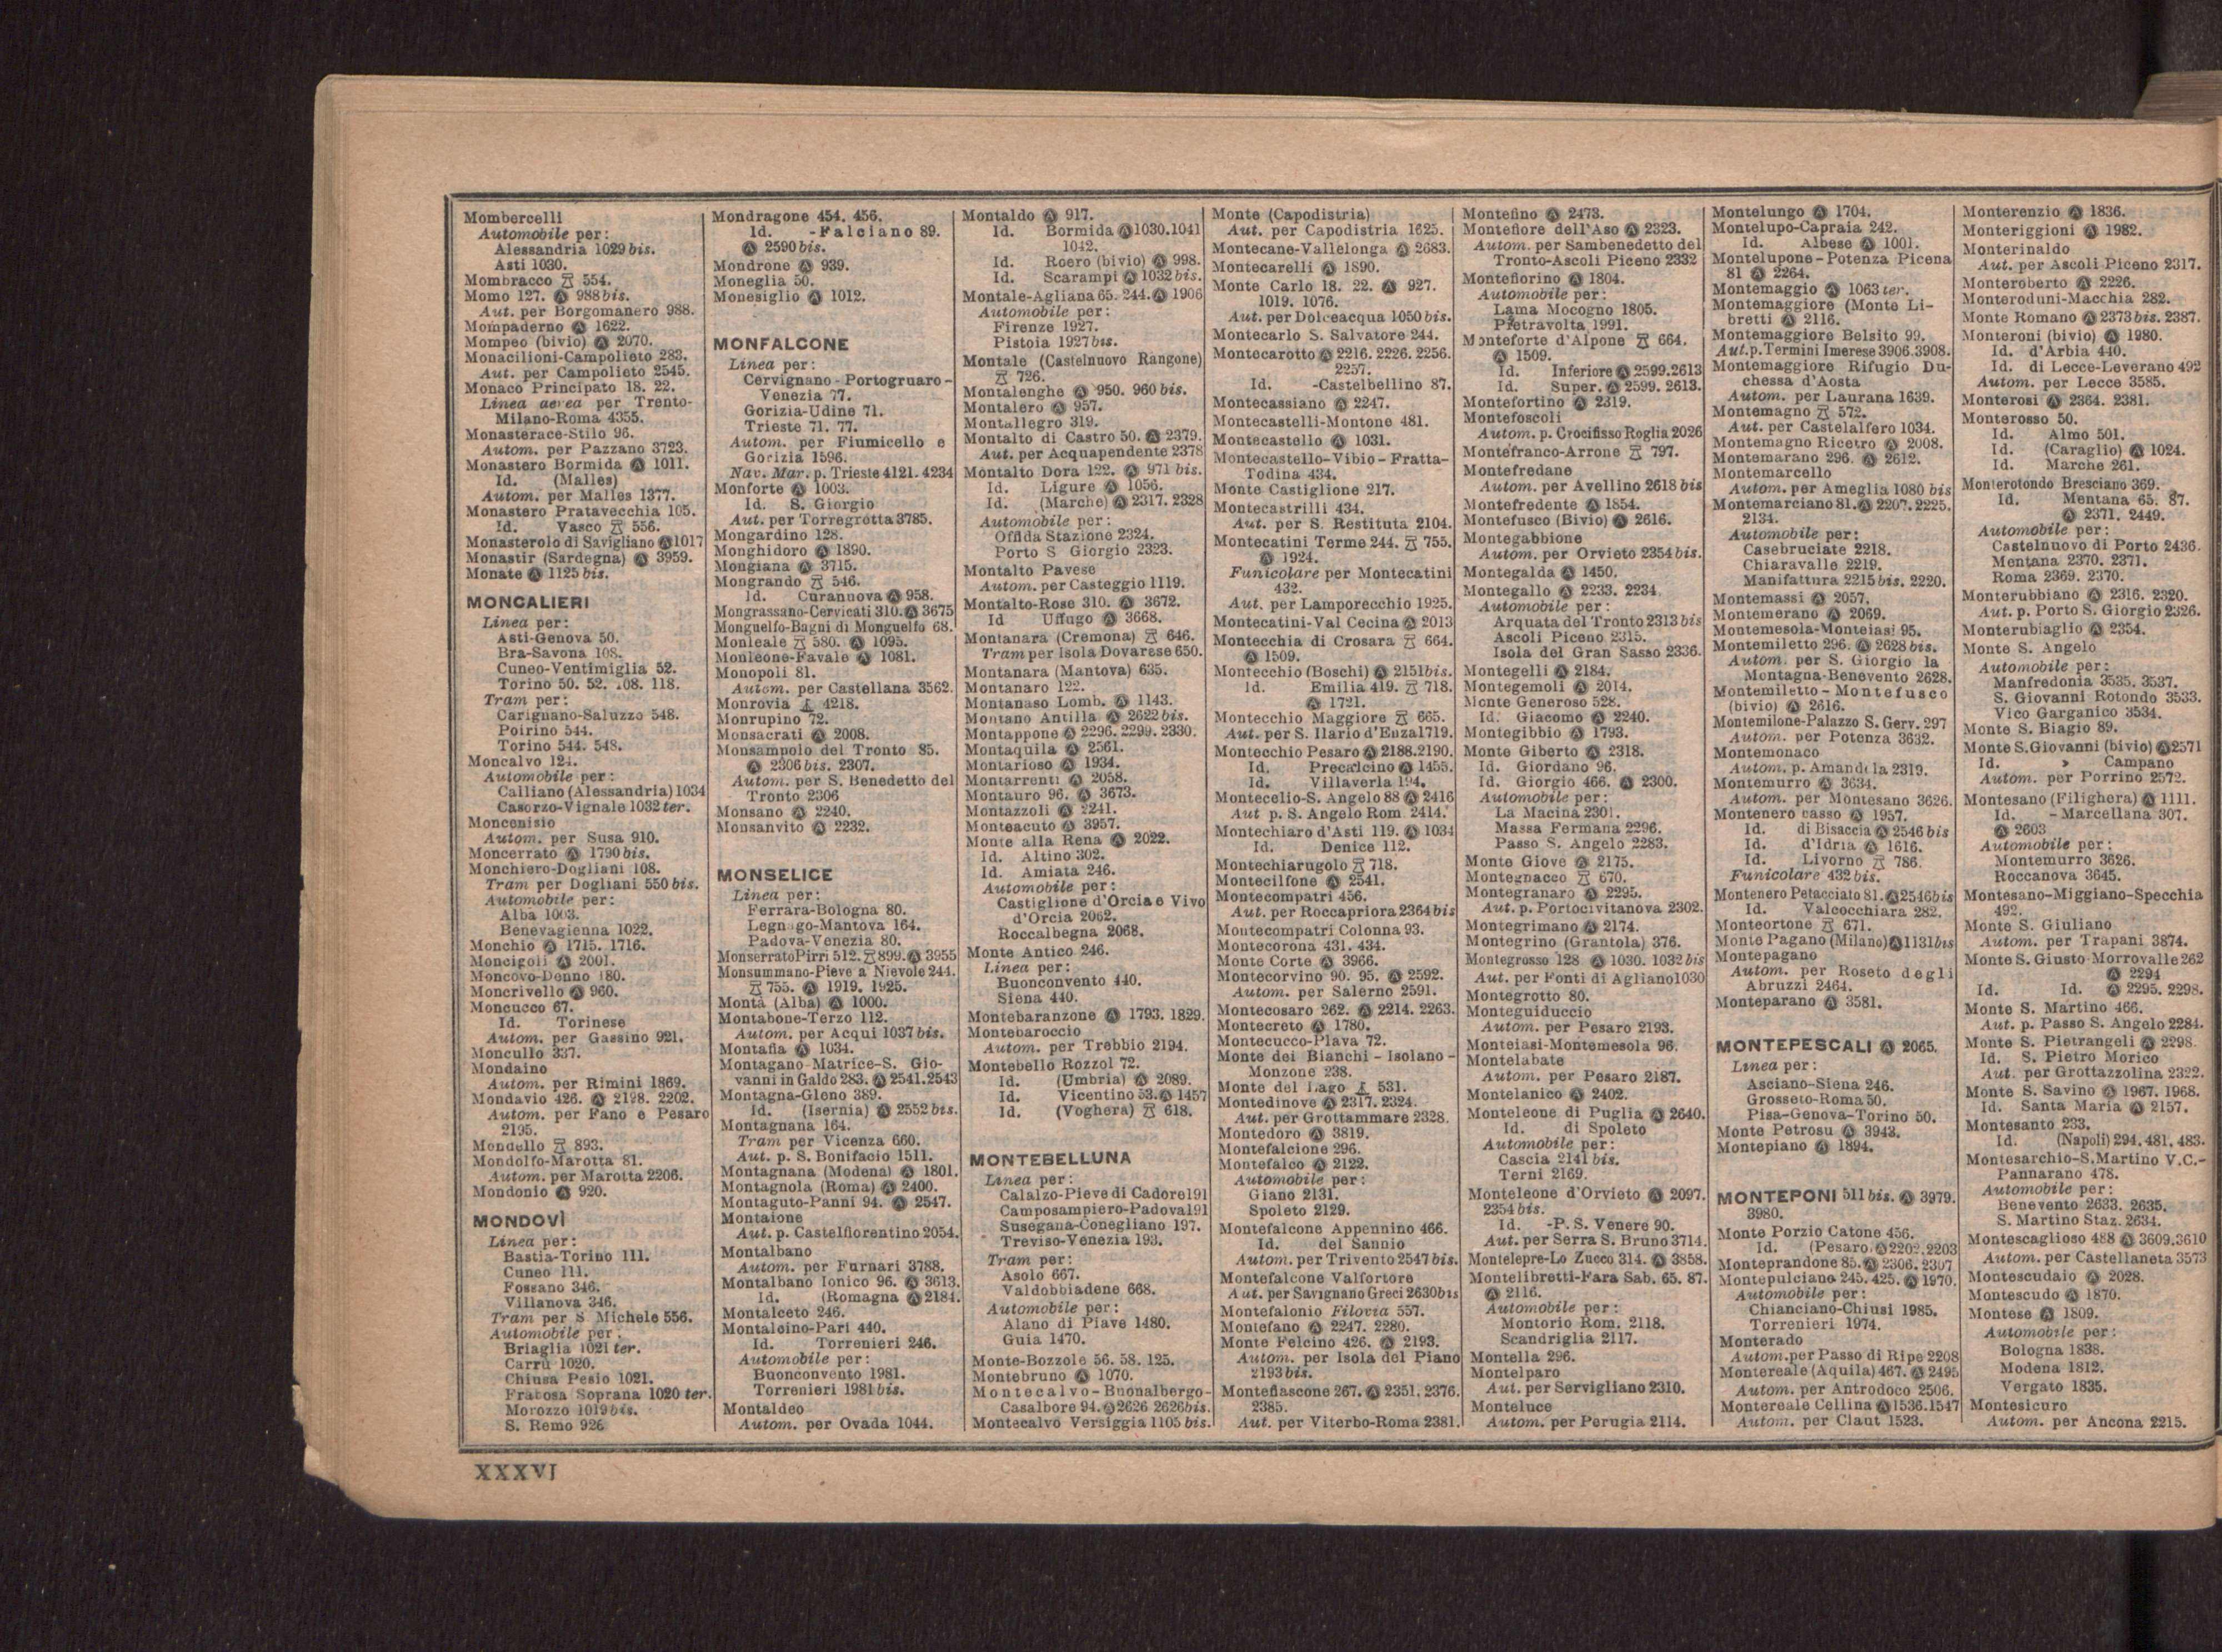 Mombercelli
Automobile per:
Alessandria 1029 bis.
Asti 1030.
Mombracco 554.
Momo 127. Ⓐ 988 bis.
Aut. per Borgomanero 988.
Mompaderno Ⓐ 1622.
Mompeo (bivio) Ⓐ 2070.
Monacilioni-Campolieto 283.
Aut. per Campolieto 2545.
Monaco Principato 18. 22.
Linea aerea per Trento-
Milano-Roma 4355.
Monasterace-Stilo 96.
Autom. per Pazzano 3723.
Monastero Bormida Ⓐ 1011.
Id. (Malles)
Autom. per Malles 1377.
Monastero Pratavecchia 105.
Id. Vasco 556.
Monasterolo di Savigliano Ⓐ 1017
Monastir (Sardegna) Ⓐ 3959.
Monate Ⓐ 1125 bis.
MONCALIERI
Linea per:
Asti-Genova 50.
Bra-Savona 108.
Cuneo-Ventimiglia 52.
Torino 50. 52. 108. 118.
Tram per:
Carignano-Saluzzo 548.
Poirino 544.
Torino 544. 548.
Moncalvo 121.
Automobile per:
Calliano (Alessandria) 1034
Casorzo-Vignale 1032 ter.
Moncenisio
Autom. per Susa 910.
Moncerrato Ⓐ 1790 bis.
Monchiero-Dogliani 108.
Tram per Dogliani 550 bis.
Automobile per:
Alba 1003.
Benevagienna 1022.
Monchio Ⓐ 1715. 1716.
Moncigoli Ⓐ 2001.
Moncovo-Denno 180.
Moncrivello Ⓐ 960.
Moncucco 67.
Id. Torinese
Autom. per Gassino 921.
Moncullo 337.
Mondaino
Autom. per Rimini 1869.
Mondavio 426. Ⓐ 2198. 2202.
Autom. per Fano e Pesaro
2195.
Mondello 893.
Mondolfo-Marotta 81.
Autom. per Marotta 2206.
Mondonio Ⓐ 920.
MONDOVÌ
Linea per:
Bastia-Torino 111.
Cuneo 111.
Fossano 346.
Villanova 346.
Tram per S. Michele 556.
Automobile per:
Briaglia 1021 ter.
Carrù 1020.
Chiusa Pesio 1021.
Frabosa Soprana 1020 ter.
Morozzo 1019 bis.
S. Remo 926
Mondragone 454. 456.
Id. -Falciano 89.
Ⓐ 2590 bis.
Mondrone Ⓐ 939.
Moneglia 50.
Monesiglio Ⓐ 1012.
MONFALCONE
Linea per:
Cervignano-Portogruaro-
Venezia 77.
Gorizia-Udine 71.
Trieste 71. 77.
Autom. per Fiumicello e
Gorizia 1596.
Nav. Mar. p. Trieste 4121. 4234
Monforte Ⓐ 1003.
Id. S. Giorgio
Aut. per Torregrotta 3785.
Mongardino 128.
Monghidoro Ⓐ 1890.
Mongiana Ⓐ 3715.
Mongrando 546.
Id. Curanuova Ⓐ 958.
Mongrassano-Cervicati 310. Ⓐ 3675
Monguelfo-Bagni di Monguelfo 68.
Monleale 580. Ⓐ 1095.
Monleone-Favale Ⓐ 1081.
Monopoli 81.
Autom. per Castellana 3562.
Monrovia 4218.
Monrupino 72.
Monsacrati Ⓐ 2008.
Monsampolo del Tronto 85.
Ⓐ 2306 bis. 2307.
Autom. per S. Benedetto del
Tronto 2306
Monsano Ⓐ 2240.
Monsanvito Ⓐ 2232.
MONSELICE
Linea per:
Ferrara-Bologna 80.
Legnago-Mantova 164.
Padova-Venezia 80.
Monserrato Pirri 512. 899. Ⓐ 3955
Monsummano-Pieve a Nievole 244.
755. Ⓐ 1919. 1925.
Montà (Alba) Ⓐ 1000.
Montabone-Terzo 112.
Autom. per Acqui 1037 bis.
Montafia Ⓐ 1034.
Montagano-Matrice-S. Gio-
vanni in Galdo 283. Ⓐ 2541. 2543
Montagna-Gleno 389.
Id. (Isernia) Ⓐ 2552 bis.
Montagnana 164.
Tram per Vicenza 660.
Aut. p. S. Bonifacio 1511.
Montagnana (Modena) Ⓐ 1801.
Montagnola (Roma) Ⓐ 2400.
Montaguto-Panni 94. Ⓐ 2547.
Montaione
Aut. p. Castelfiorentino 2054.
Montalbano
Autom. per Furnari 3788.
Montalbano Ionico 96. Ⓐ 3613.
Id. (Romagna Ⓐ 2184.
Montalceto 246.
Montalcino-Pari 440.
Id. Torrenieri 246.
Automobile per:
Buonconvento 1981.
Torrenieri 1981 bis.
Montaldeo
Autom. per Ovada 1044.
Montaldo Ⓐ 917.
Id. Bormida Ⓐ 1030. 1041
1042.
Id. Roero (bivio) Ⓐ 998.
Id. Scarampi Ⓐ 1032 bis.
Montale-Agliana 65. 244. Ⓐ 1906
Automobile per:
Firenze 1927.
Pistoia 1927 bis.
Montale (Castelnuovo Rangone)
726.
Montalenghe Ⓐ 950. 960 bis.
Montalero Ⓐ 957.
Montallegro 319.
Montalto di Castro 50. Ⓐ 2379.
Aut. per Acquapendente 2378
Montalto Dora 122. Ⓐ 971 bis.
Id. Ligure Ⓐ 1056.
Id. (Marche) Ⓐ 2317. 2328
Automobile per:
Offida Stazione 2324.
Porto S Giorgio 2323.
Montalto Pavese
Autom. per Casteggio 1119.
Montalto-Rose 310. Ⓐ 3672.
Id Uffugo Ⓐ 3668.
Montanara (Cremona) 646.
Tram per Isola Dovarese 650.
Montanara (Mantova) 635.
Montanaro 122.
Montanaso Lomb. Ⓐ 1143.
Montano Antilla Ⓐ 2622 bis.
Montappone Ⓐ 2296. 2299. 2330.
Montaquila Ⓐ 2561.
Montarioso Ⓐ 1934.
Montarrenti Ⓐ 2058.
Montauro 96. Ⓐ 3673.
Montazzoli Ⓐ 2241.
Monteacuto Ⓐ 3957.
Monte alla Rena Ⓐ 2022.
Id. Altino 302.
Id. Amiata 246.
Automobile per:
Castiglione d'Orcia e Vivo
d'Orcia 2062.
Roccalbegna 2068.
Monte Antico 246.
Linea per:
Buonconvento 440.
Siena 440.
Montebaranzone Ⓐ 1793. 1829.
Montebaroccio
Autom. per Trebbio 2194.
Montebello Rozzol 72.
Id. (Umbria) Ⓐ 2089.
Id. Vicentino 53. Ⓐ 1457
Id. (Voghera) 618.
MONTEBELLUNA
Linea per:
Calalzo-Pieve di Cadore 191
Camposampiero-Padova 191
Susegana-Conegliano 197.
Treviso-Venezia 193.
Tram per:
Asolo 667.
Valdobbiadene 668.
Automobile per:
Alano di Piave 1480.
Guia 1470.
Monte-Bozzole 56. 58. 125.
Montebruno Ⓐ 1070.
Montecalvo-Buonalbergo-
Casalbore 94. Ⓐ 2626 2626 bis.
Montecalvo Versiggia 1105 bis.
Monte (Capodistria)
Aut. per Capodistria 1625.
Montecane-Vallelonga Ⓐ 2683.
Montecarelli Ⓐ 1890.
Monte Carlo 18. 22. Ⓐ 927.
1019. 1076.
Aut. per Dolceacqua 1050 bis.
Montecarlo S. Salvatore 244.
Montecarotto Ⓐ 2216. 2226. 2256.
2257.
Id. -Castelbellino 87.
Montecassiano Ⓐ 2247.
Montecastelli-Montone 481.
Montecastello Ⓐ 1031.
Montecastello-Vibio-Fratta-
Todina 434.
Monte Castiglione 217.
Montecastrilli 434.
Aut. per S. Restituta 2104.
Montecatini Terme 244. 755.
Ⓐ 1924.
Funicolare per Montecatini
432.
Aut. per Lamporecchio 1925.
Montecatini-Val Cecina Ⓐ 2013
Montecchia di Crosara 664.
Ⓐ 1509.
Montecchio (Boschi) Ⓐ 2151 bis.
Id. Emilia 419. 718.
Ⓐ 1721.
Montecchio Maggiore 665.
Aut. per S. Ilario d'Enza 1719.
Montecchio Pesaro Ⓐ 2188. 2190.
Id. Precalcino Ⓐ 1455.
Id. Villaverla 194.
Montecelio-S. Angelo 88 Ⓐ 2416
Aut p. S. Angelo Rom 2414.
Montechiaro d'Asti 119. Ⓐ 1034
Id. Denice 112.
Montechiarugolo 718.
Montecilfone Ⓐ 2541.
Montecompatri 456.
Aut. per Roccapriora 2364 bis
Montecompatri Colonna 93.
Montecorona 431. 434.
Monte Corte Ⓐ 3966.
Montecorvino 90. 95. Ⓐ 2592.
Autom. per Salerno 2591.
Montecosaro 262. Ⓐ 2214. 2263.
Montecreto Ⓐ 1780.
Montecucco-Plava 72.
Monte dei Bianchi-Isolano-
Monzone 238.
Monte del Lago 531.
Montedinove Ⓐ 2317. 2324.
Aut. per Grottammare 2328.
Montedoro Ⓐ 3819.
Montefalcione 296.
Montefalco Ⓐ 2122.
Automobile per:
Giano 2131.
Spoleto 2129.
Montefalcone Appennino 466.
Id. del Sannio
Autom. per Trivento 2547 bis.
Montefalcone Valfortore
Aut. per Savignano Greci 2630 bis
Montefalonio Filovia 557.
Montefano Ⓐ 2247. 2280.
Monte Felcino 426. Ⓐ 2193.
Autom. per Isola del Piano
2193 bis.
Montefiascone 267. Ⓐ 2351. 2376.
2385.
Aut. per Viterbo-Roma 2381.
Montefino Ⓐ 2473.
Montefiore dell'Aso Ⓐ 2323.
Autom. per Sambenedetto del
Tronto-Ascoli Piceno 2332
Montefiorino Ⓐ 1804.
Automobile per:
Lama Mocogno 1805.
Pietravolta 1991.
Monteforte d'Alpone 664.
Ⓐ 1509.
Id. Inferiore Ⓐ 2599. 2613
Id. Super. Ⓐ 2599. 2613.
Montefortino Ⓐ 2319.
Montefoscoli
Autom. p. Crocifisso Roglia 2026
Montefranco-Arrone 797.
Montefredane
Autom. per Avellino 2618 bis
Montefredente Ⓐ 1854.
Montefusco (Bivio) Ⓐ 2616.
Montegabbione
Autom. per Orvieto 2354 bis.
Montegalda Ⓐ 1450.
Montegallo Ⓐ 2233. 2234.
Automobile per:
Arquata del Tronto 2313 bis
Ascoli Piceno 2315.
Isola del Gran Sasso 2336.
Montegelli Ⓐ 2184.
Montegemoli Ⓐ 2014.
Monte Generoso 528.
Id. Giacomo Ⓐ 2240.
Montegibbio Ⓐ 1793.
Monte Giberto Ⓐ 2318.
Id. Giordano 96.
Id. Giorgio 466. Ⓐ 2300.
Automobile per:
La Macina 2301.
Massa Fermana 2296.
Passo S. Angelo 2283.
Monte Giove Ⓐ 2175.
Montegnacco 670.
Montegranaro Ⓐ 2295.
Aut. p. Portocivitanova 2302.
Montegrimano Ⓐ 2174.
Montegrino (Grantola) 376.
Montegrosso 128 Ⓐ 1030. 1032 bis
Aut. per Fonti di Agliano 1030
Montegrotto 80.
Monteguiduccio
Autom. per Pesaro 2193.
Monteiasi-Montemesola 96.
Montelabate
Autom. per Pesaro 2187.
Montelanico Ⓐ 2402.
Monteleone di Puglia Ⓐ 2640.
Id. di Spoleto
Automobile per:
Cascia 2141 bis.
Terni 2169.
Monteleone d'Orvieto Ⓐ 2097.
2354 bis.
Id. -P. S. Venere 90.
Aut. per Serra S. Bruno 3714.
Montelepre-Lo Zucco 314. Ⓐ 3858.
Montelibretti-Fara Sab. 65. 87.
Ⓐ 2116.
Automobile per:
Montorio Rom. 2118.
Scandriglia 2117.
Montella 296.
Montelparo
Aut. per Servigliano 2310.
Monteluce
Autom. per Perugia 2114.
Montelungo Ⓐ 1704.
Montelupo-Capraia 242.
Id. Albese Ⓐ 1001.
Montelupone-Potenza Picena
81 Ⓐ 2264.
Montemaggio Ⓐ 1063 ter.
Montemaggiore (Monte Li-
bretti Ⓐ 2116.
Montemaggiore Belsito 99.
Aut. p. Termini Imerese 3906. 3908.
Montemaggiore Rifugio Du-
chessa d'Aosta
Autom. per Laurana 1639.
Montemagno 572.
Aut. per Castelalfero 1034.
Montemagno Ricetro Ⓐ 2008.
Montemarano 296. Ⓐ 2612.
Montemarcello
Autom. per Ameglia 1080 bis
Montemarciano 81. Ⓐ 2207. 2225.
2134.
Automobile per:
Casebruciate 2218.
Chiaravalle 2219.
Manifattura 2215 bis. 2220.
Montemassi Ⓐ 2057.
Montemerano Ⓐ 2069.
Montemesola-Monteiasi 95.
Montemiletto 296. Ⓐ 2628 bis.
Autom. per S. Giorgio la
Montagna-Benevento 2628.
Montemiletto-Montefusco
(bivio) Ⓐ 2616.
Montemilone-Palazzo S. Gerv. 297
Autom. per Potenza 3632.
Montemonaco
Autom. p. Amandola 2319.
Montemurro Ⓐ 3634.
Autom. per Montesano 3626.
Montenero basso Ⓐ 1957.
Id. di Bisaccia Ⓐ 2546 bis
Id. d'Idria Ⓐ 1616.
Id. Livorno 786.
Funicolare 432 bis.
Montenero Petacciato 81. Ⓐ 2546 bis
Id. Valcocchiara 282.
Monteortone 671.
Monte Pagano (Milano) Ⓐ 1131 bis
Montepagano
Autom. per Roseto degli
Abruzzi 2464.
Monteparano Ⓐ 3581.
MONTEPESCALI Ⓐ 2065.
Linea per:
Asciano-Siena 246.
Grosseto-Roma 50.
Pisa-Genova-Torino 50.
Monte Petrosu Ⓐ 3943.
Montepiano Ⓐ 1894.
MONTEPONI 511 bis. Ⓐ 3979.
3980.
Monte Porzio Catone 456.
Id. (Pesaro) Ⓐ 2202. 2203
Monteprandone 85. Ⓐ 2306. 2307
Montepulciano 245. 425. Ⓐ 1970.
Automobile per:
Chianciano-Chiusi 1985.
Torrenieri 1974.
Monterado
Autom. per Passo di Ripe 2208
Montereale (Aquila) 467. Ⓐ 2495
Autom. per Antrodoco 2506.
Montereale Cellina Ⓐ 1536. 1547
Autom. per Claut 1523.
Monterenzio Ⓐ 1836.
Monteriggioni Ⓐ 1982.
Monterinaldo
Aut. per Ascoli Piceno 2317.
Monteroberto Ⓐ 2226.
Monteroduni-Macchia 282.
Monte Romano Ⓐ 2373 bis. 2387.
Monteroni (bivio) Ⓐ 1980.
Id. d'Arbia 440.
Id. di Lecce-Leverano 492
Autom. per Lecce 3585.
Monterosi Ⓐ 2364. 2381.
Monterosso 50.
Id. Almo 501.
Id. (Caraglio) Ⓐ 1024.
Id. Marche 261.
Monterotondo Bresciano 369.
Id. Mentana 65. 87.
Ⓐ 2371. 2449.
Automobile per:
Castelnuovo di Porto 2436.
Mentana 2370. 2371.
Roma 2369. 2370.
Monterubbiano Ⓐ 2316. 2320.
Aut. p. Porto S. Giorgio 2326.
Monterubiaglio Ⓐ 2354.
Monte S. Angelo
Automobile per:
Manfredonia 3535. 3537.
S. Giovanni Rotondo 3533.
Vico Garganico 3534.
Monte S. Biagio 89.
Monte S. Giovanni (bivio) Ⓐ 2571
Id. » Campano
Autom. per Porrino 2572.
Montesano (Filighera) Ⓐ 1111.
Id. -Marcellana 307.
Ⓐ 2603
Automobile per:
Montemurro 3626.
Roccanova 3645.
Montesano-Miggiano-Specchia
492.
Monte S. Giuliano
Autom. per Trapani 3874.
Monte S. Giusto-Morrovalle 262
Ⓐ 2294
Id. Id. Ⓐ 2295. 2298.
Monte S. Martino 466.
Aut. p. Passo S. Angelo 2284.
Monte S. Pietrangeli Ⓐ 2298.
Id. S. Pietro Morico
Aut. per Grottazzolina 2322.
Monte S. Savino Ⓐ 1967. 1968.
Id. Santa Maria Ⓐ 2157.
Montesanto 233.
Id. (Napoli) 294. 481. 483.
Montesarchio-S. Martino V.C.-
Pannarano 478.
Automobile per:
Benevento 2633. 2635.
S. Martino Staz. 2634.
Montescaglioso 488 Ⓐ 3609. 3610
Autom. per Castellaneta 3573
Montescudaio Ⓐ 2028.
Montescudo Ⓐ 1870.
Montese Ⓐ 1809.
Automobile per:
Bologna 1838.
Modena 1812.
Vergato 1835.
Montesicuro
Autom. per Ancona 2215.
XXXVI